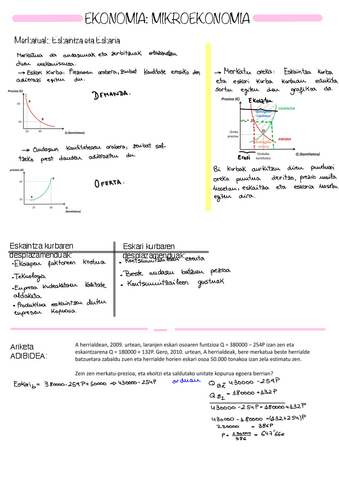 EKONOMIA: MIKROEKONOMIA
Merkatuak: Eskaintza eta Eskaria
Merkatua da ondasunak eta zerbitzuak
duen mekanismoa.
→ Eskari kurba: Prezioaren arabera, zenbat kantitate erosiko den
adierazi egiten du.
Prezioa (€)
DEMANDA.
Q (kantitatea)
→ Ondasun kantitatearen arabera, zenbat
pest dauden adierazten du.
prezioa (€)
OFERTA.
Q (kantitatea)
→ Merkatu oreka: Eskaintza kurba
eta eskari kurbaren
sortu egiten den grafikoa da.
Prezioa (€)
Eskaintza
ESKARIA
Oreka
prezioa
Orekako
kantitatea
Q (kantitatea)
Eskari
Bi kurbak aurkitzen diren puntuari
oreka puntua deritzo, prezio maila
honetan, eskaintza eta eskaria
egiten dira.
Eskaintza kurbaren
desplazamenduak:
- Ekoizpen faktoreen kostua
- Teknologia
- Enpresa
aldaketa
- Produktua eskaintzen duten
enpresen kopurua
Eskari kurbaren
desplazamenduak:
- Kontsumitzaileen errenta
- Beste ondasun batzuen prezioa
- Kontsumitzaileen gustuak
Ariketa
ADIBIDEA:
A herrialdean, 2009. urtean, laranjen eskari osoaren funtzioa Q = 380000 – 254P izan zen eta
eskaintzarena Q = 180000 + 132P. Gero, 2010. urtean, A herrialdeak, bere merkatua beste herrialde
batzuetara zabaldu zuen eta herrialde horien eskari osoa 50.000 tonakoa izan zela estimatu zen.
Zein zen merkatu-prezioa, eta ekoitzi eta saldutako unitate kopurua egoera berrian?
= 380000-254P+50000 → 430000-254P orduan
430000-254P
= 180000+132P
430000-254P = 180000+132P
430000-180000 = (132+254)P
250000 = 386P
P = 250000/386 = 647'66€